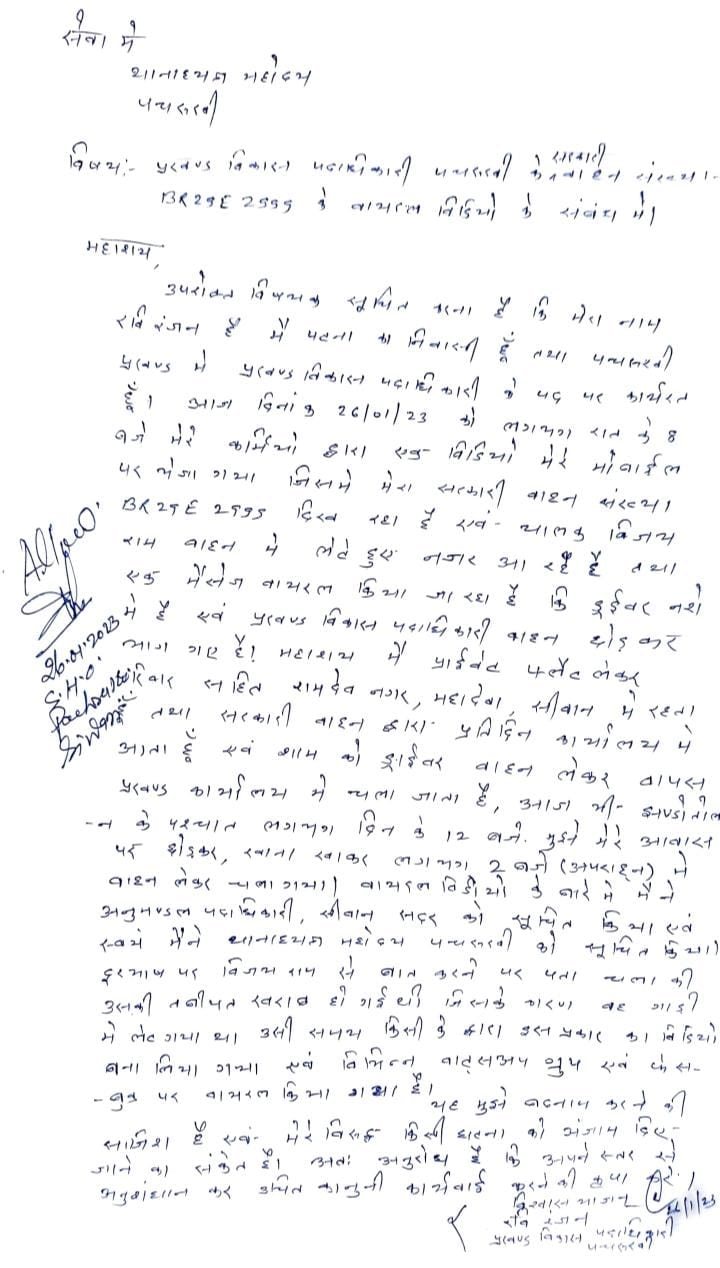 सेवा में
थानाध्यक्ष महोदय
पचरुखी
विषय:- प्रखण्ड विकास पदाधिकारी पचरुखी के सरकारी वाहन संख्या।-
BR29E 2995 के वायरल विडियो के संबंध में।
महाशय,
उपरोक्त विषयक सूचित करना है कि मेरा नाम
रवि रंजन है मैं पटना का निवासी हूँ तथा पचरुखी
प्रखण्ड मे प्रखण्ड विकास पदाधिकारी के पद पर कार्यरत
हूँ। आज दिनांक 26/01/23 को लगभग रात के 8
बजे मेरे कर्मियो द्वारा एक विडियो मेरे मोबाईल
पर भेजा गया जिसमे मेरा सरकारी वाहन संख्या।
BR29E 2995 दिख रहा है एवं- चालक विजय
राम वाहन मे लेटे हुए नजर आ रहे है तथा
एक मैसेज वायरल किया जा रहा है कि ड्राईवर नशे
मे है एवं प्रखण्ड विकास पदाधिकारी वाहन छोड़कर
भाग गए है। महाशय मैं प्राईवेट फ्लैट लेकर
परिवार सहित रामदेव नगर, महादेवा, सीवान मे रहता
हूँ तथा सरकारी वाहन द्वारा प्रतिदिन कार्यालय मे
आता हूँ एवं शाम को ड्राईवर वाहन लेकर वापस
प्रखण्ड कार्यालय मे चला जाता है, आज भी- झण्डोतोल
-न के पश्चात लगभग दिन के 12 बजे. मुझे मेरे आवास
पर छोड़कर, खाना खाकर लगभग 2 बजे (अपराह्न) मे
वाहन लेकर चला गया। वायरल विडीयो के बारे मे मैंने
अनुमण्डल पदाधिकारी, सीवान सदर को सूचित किया एवं
स्वयं मैंने थानाध्यक्ष महोदय पचरुखी को सूचित किया।
दुरभाष पर विजय राम से बात करने पर पता चला की
उसकी तबीयत खराब हो गई थी जिसके कारण वह गाड़ी
मे लेट गया था उसी समय किसी के द्वारा इस प्रकार का विडियो
बना लिया गया एवं विभिन्न वाट्सअप ग्रुप एवं फेस-
-बुक पर वायरल किया गया है।
यह मुझे बदनाम करने की
साजिश है एवं- मेरे विरुद्ध किसी घटना को अंजाम दिए-
जाने का संकेत है। अतः अनुरोध है कि अपने स्तर से
अनुसंधान कर उचित कानुनी कार्यवाई करने की कृपा करे।
विश्वास भाजन
26/1/23
रवि रंजन
प्रखण्ड विकास पदाधिकारी
पचरुखी
26.01.2023
S.H.O.
Pachrukhi
Siwan